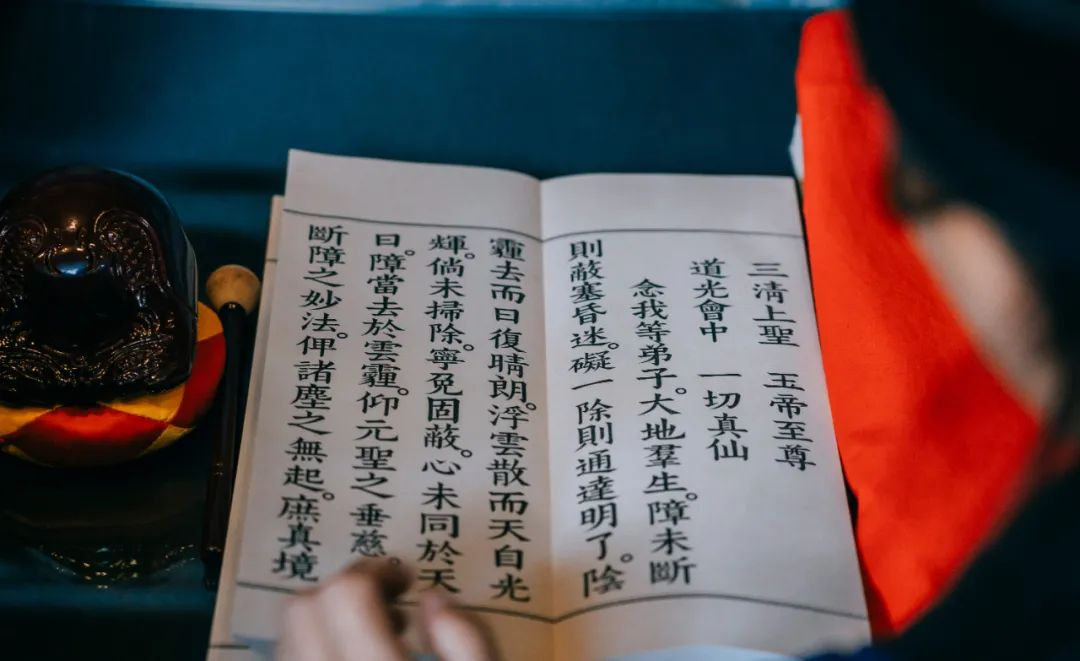 三清上聖　玉帝至尊
道光會中　一切真仙
念我等弟子。大地羣生。障未斷
則蔽塞昏迷。礙一除則通達明了。陰
霾去而日復晴朗。浮雲散而天自光
輝。倘未掃除。寧免固蔽。心未同於天
日。障當去於雲霾。仰元聖之垂慈。
斷障之妙法。俾諸塵之無起。庶真境